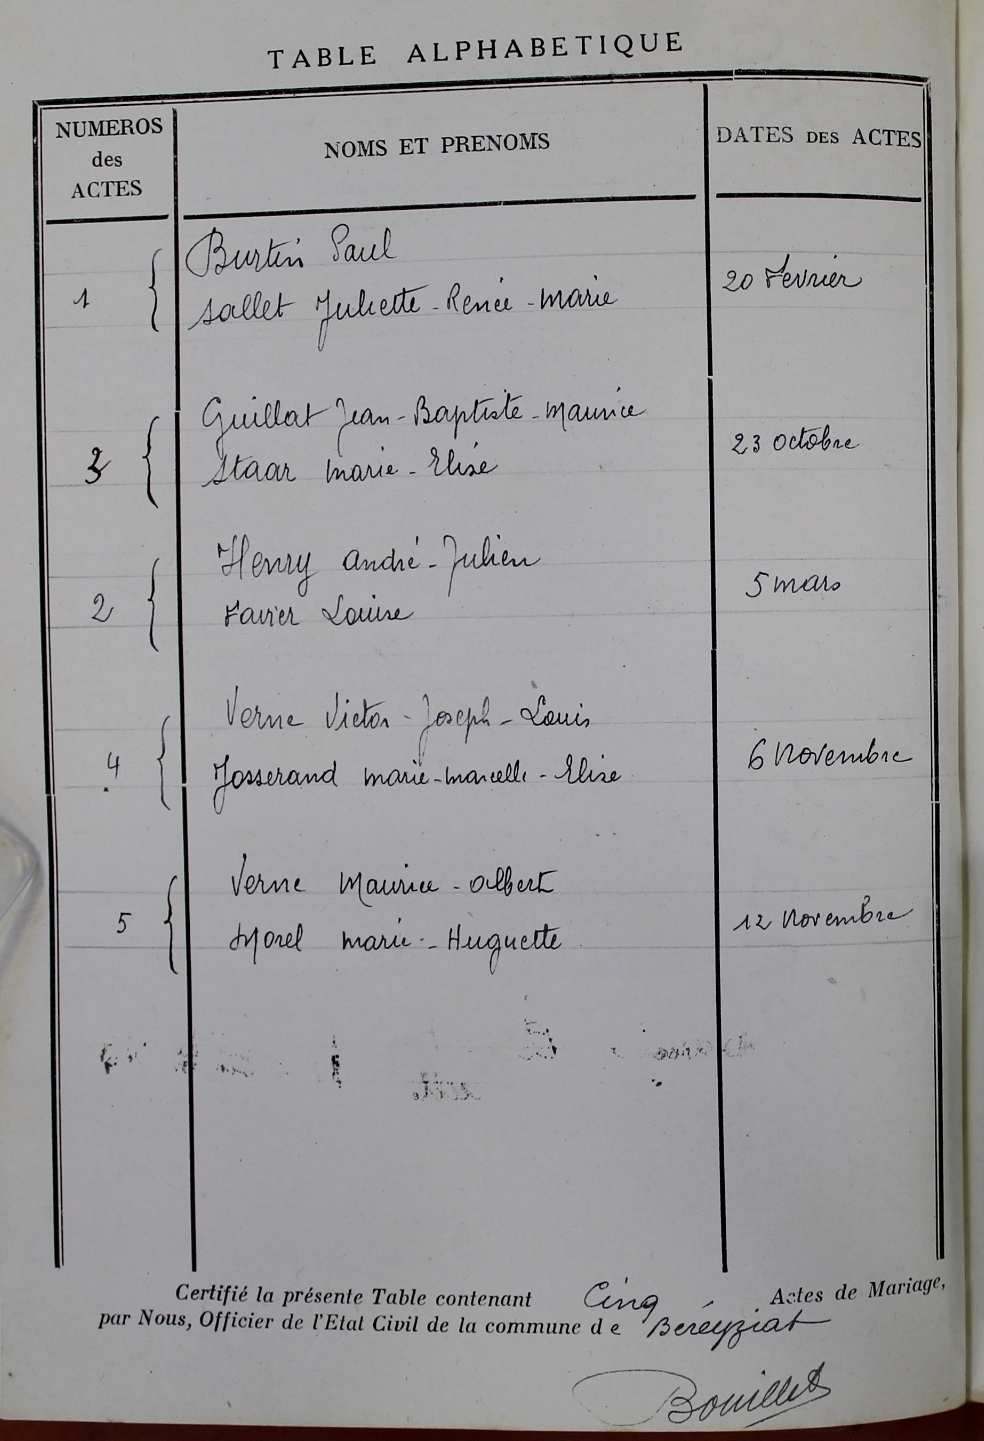 TABLE ALPHABETIQUE
NUMEROS
des
ACTES
NOMS ET PRENOMS
DATES DES ACTES
Burtin Paul
1
20 Fevrier
Sallet Juliette - Renée - Marie
Guillot Jean - Baptiste - Maurice
3
23 octobre
Staar Marie - Elise
Henry André - Julien
2
5 mars
Favier Louise
Verne Victor - Joseph - Louis
4
6 Novembre
Josserand Marie - Marcelle - Elise
Verne Maurice - Albert
5
12 Novembre
Morel Marie - Huguette
Certifié la présente Table contenant Cinq Actes de Mariage,
par Nous, Officier de l'Etat Civil de la commune de Béréyziat
Bouillet